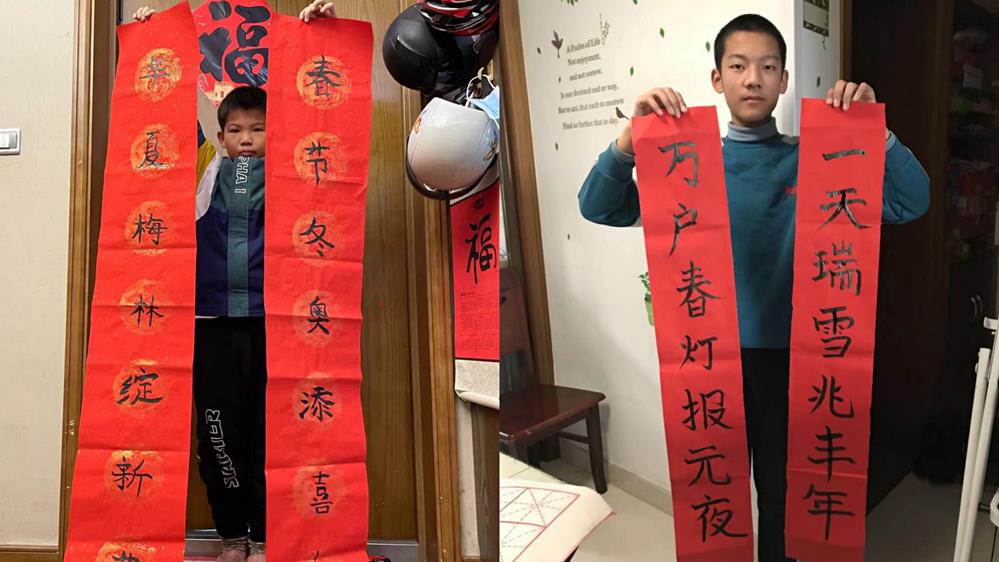 福
春节冬奥添喜
夏梅林绽新
福
A Psalm of Life
Not enjoyment,
and not sorrow,
Is our destined end or way,
But to act, that each to morrow
Find us farther that to day...
万户春灯报元夜
一天瑞雪兆丰年